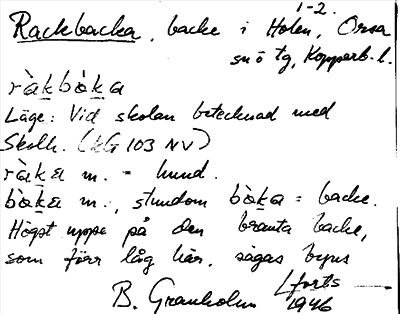 1-2.
Rackbacka, backe i Holen, Orsa
sn ö tg, Kopparb. l.
ràkbàka
Läge: Vid skolan betecknad med
Skolh. (kG 103 NV)
ràka m. = hund.
bàka m., stundom bàka = backe.
Högst uppe på den branta backe,
som förr låg här, sägas byns
B. Granholm 1946
forts